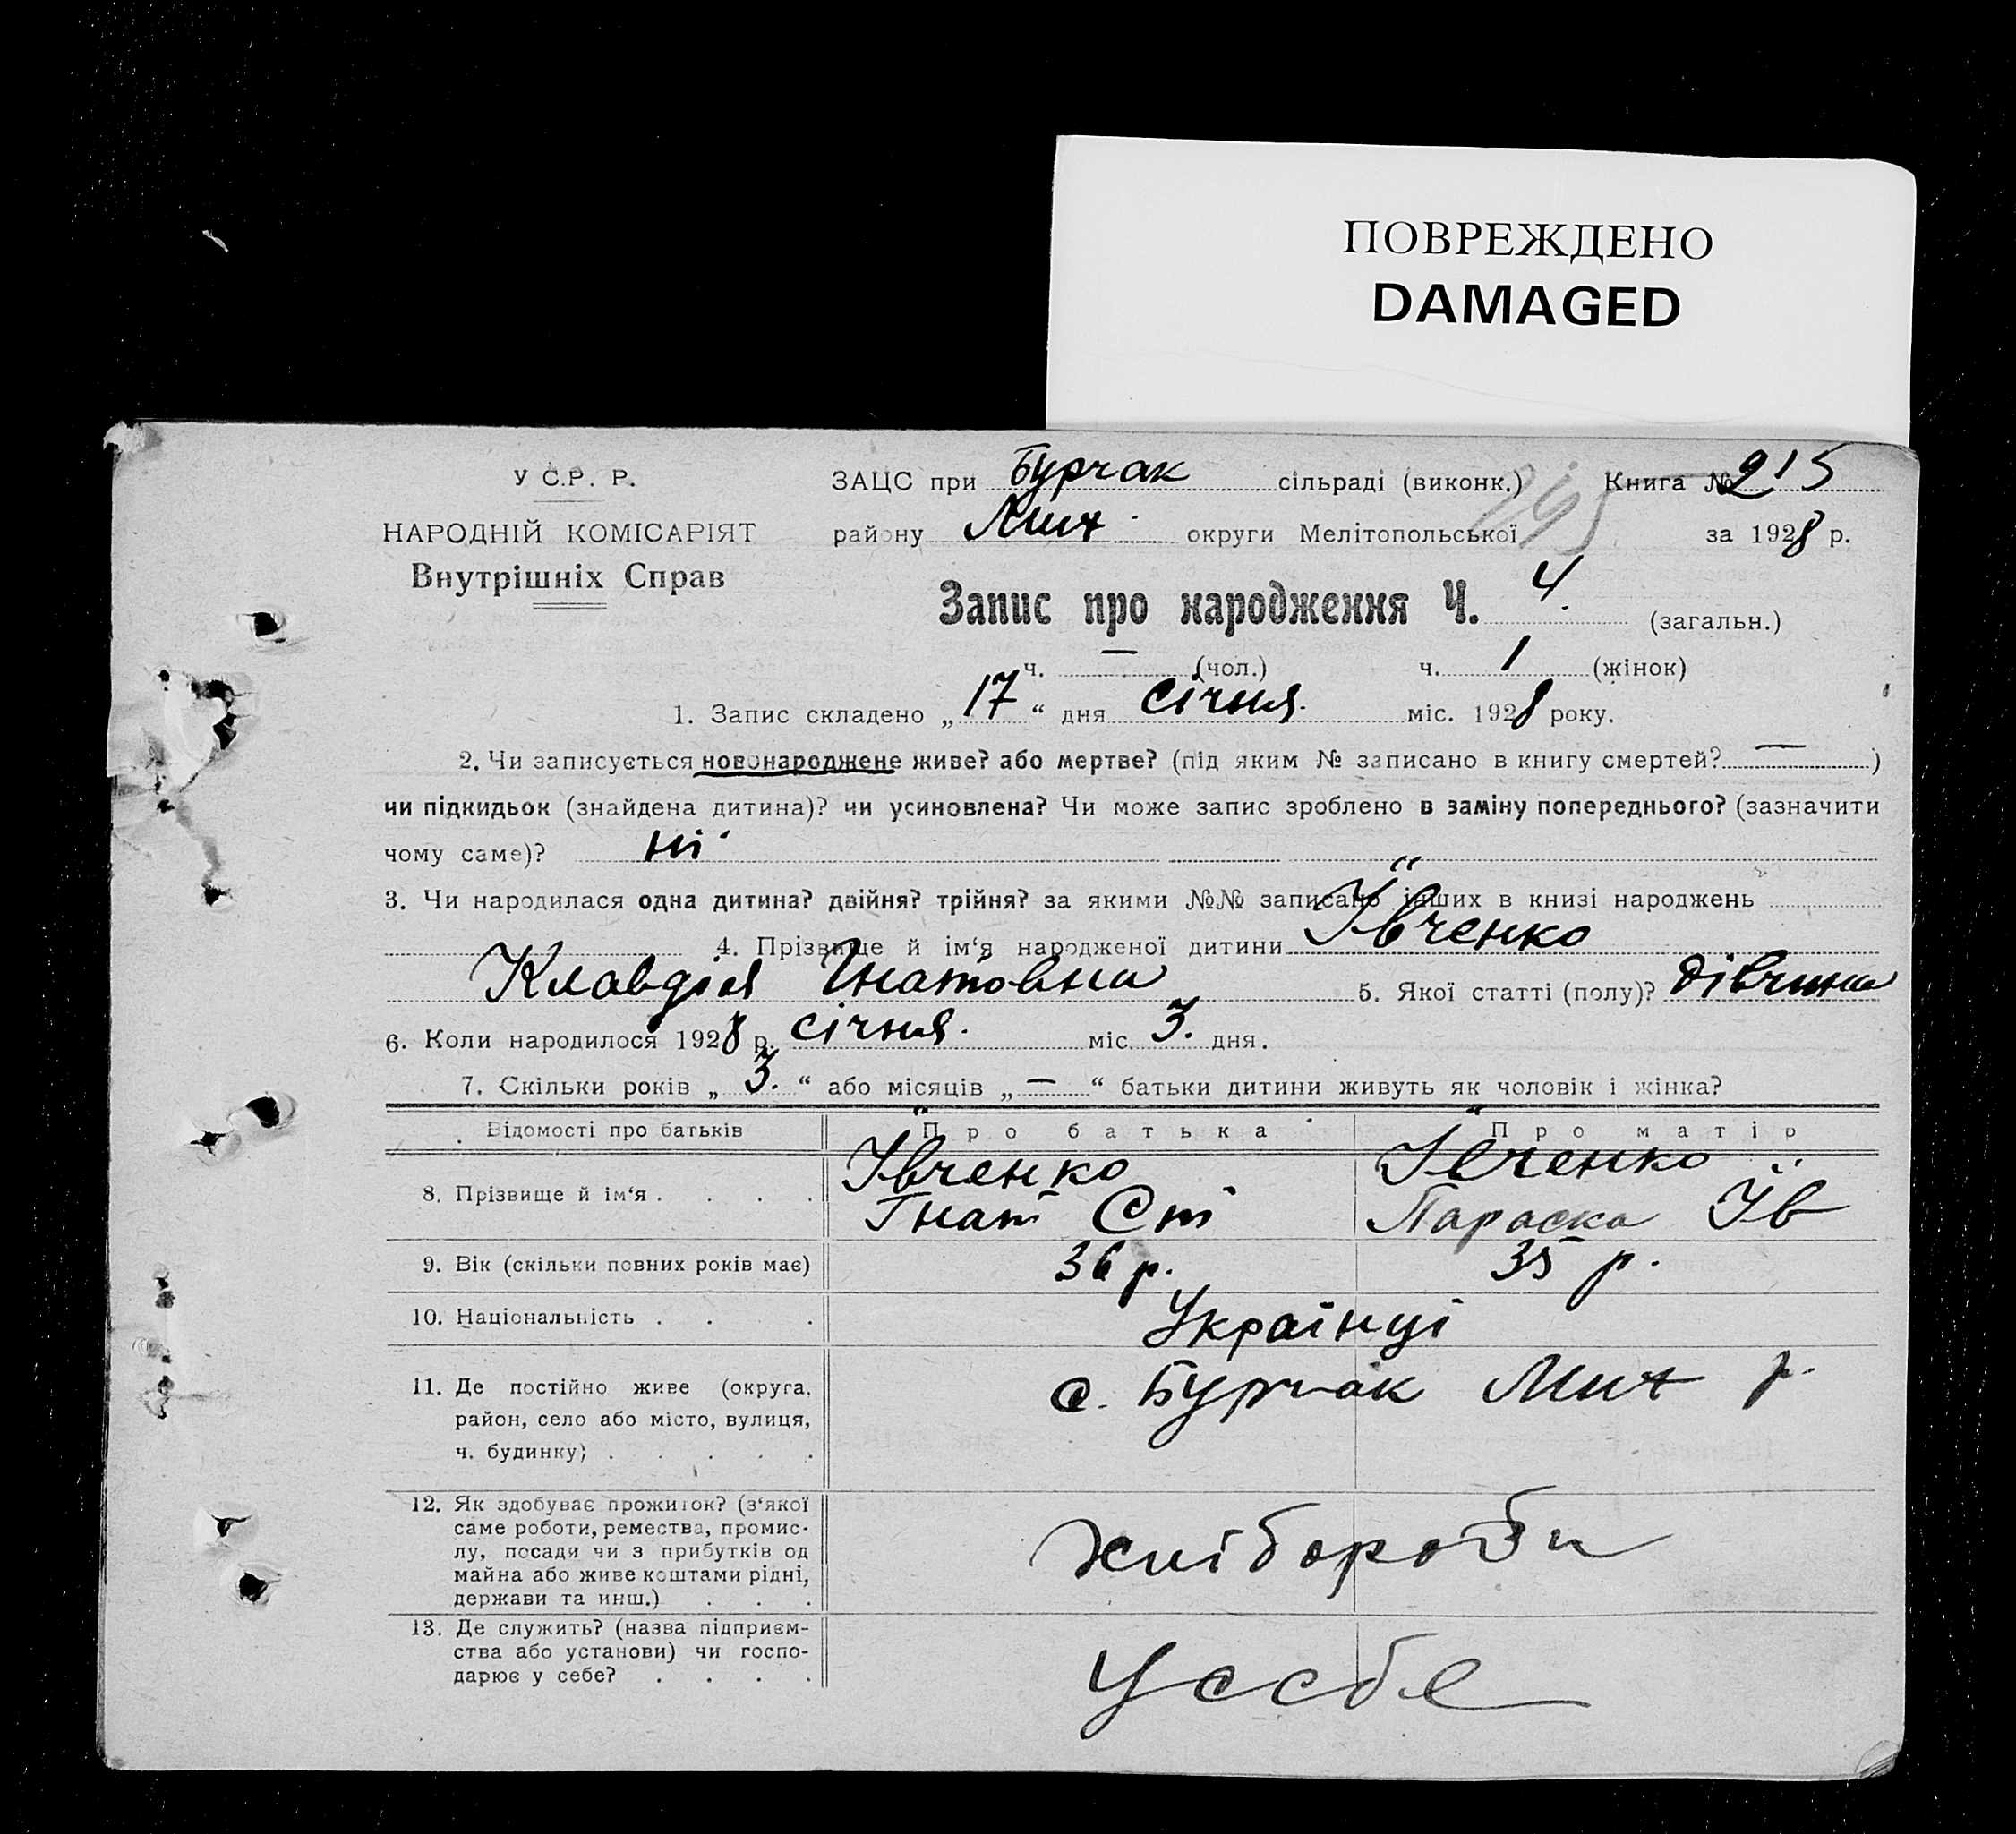 ПОВРЕЖДЕНО
DAMAGED
У С.Р. Р.
НАРОДНІЙ КОМІСАРІЯТ
Внутрішніх Справ
ЗАЦС при Бурчак сільраді (виконк.) Книга № 215
району Мих. округи Мелітопольської за 1928 р.
Запис про народження Ч. 4. (загальн.)
ч. — (чол.) ч. 1 (жінок)
1. Запис складено „17“ дня січня. міс. 1928 року.
2. Чи записується новонароджене живе? або мертве? (під яким № записано в книгу смертей? — )
чи підкидьок (знайдена дитина)? чи усиновлена? Чи може запис зроблено в заміну попереднього? (зазначити
чому саме)? ні
3. Чи народилася одна дитина? двійня? трійня? за якими №№ записано інших в книзі народжень
4. Прізвище й ім‘я народженої дитини Ївченко
Клавдія Гнатовна 5. Якої статті (полу)? дівчина
6. Коли народилося 1928 р. січня. міс. 3. дня.
7. Скільки років „3.“ або місяців „—“ батьки дитини живуть як чоловік і жінка?
Відомості про батьків Про батька Про матір
8. Прізвище й ім‘я . . . . Ївченко Гнат Ст Ївченко Параска Їв
9. Вік (скільки повних років має) 36 р. 35 р.
10. Національність . . . Українці
11. Де постійно живе (округа, с. Бурчак Мих р.
район, село або місто, вулиця,
ч. будинку) . . . . .
12. Як здобуває прожиток? (з‘якої
саме роботи, ремества, промис-
лу, посади чи з прибутків од
майна або живе коштами рідні,
держави та инш.) . . . хлібороби
13. Де служить? (назва підприєм-
ства або установи) чи госпо-
дарює у себе? . . . . У себе